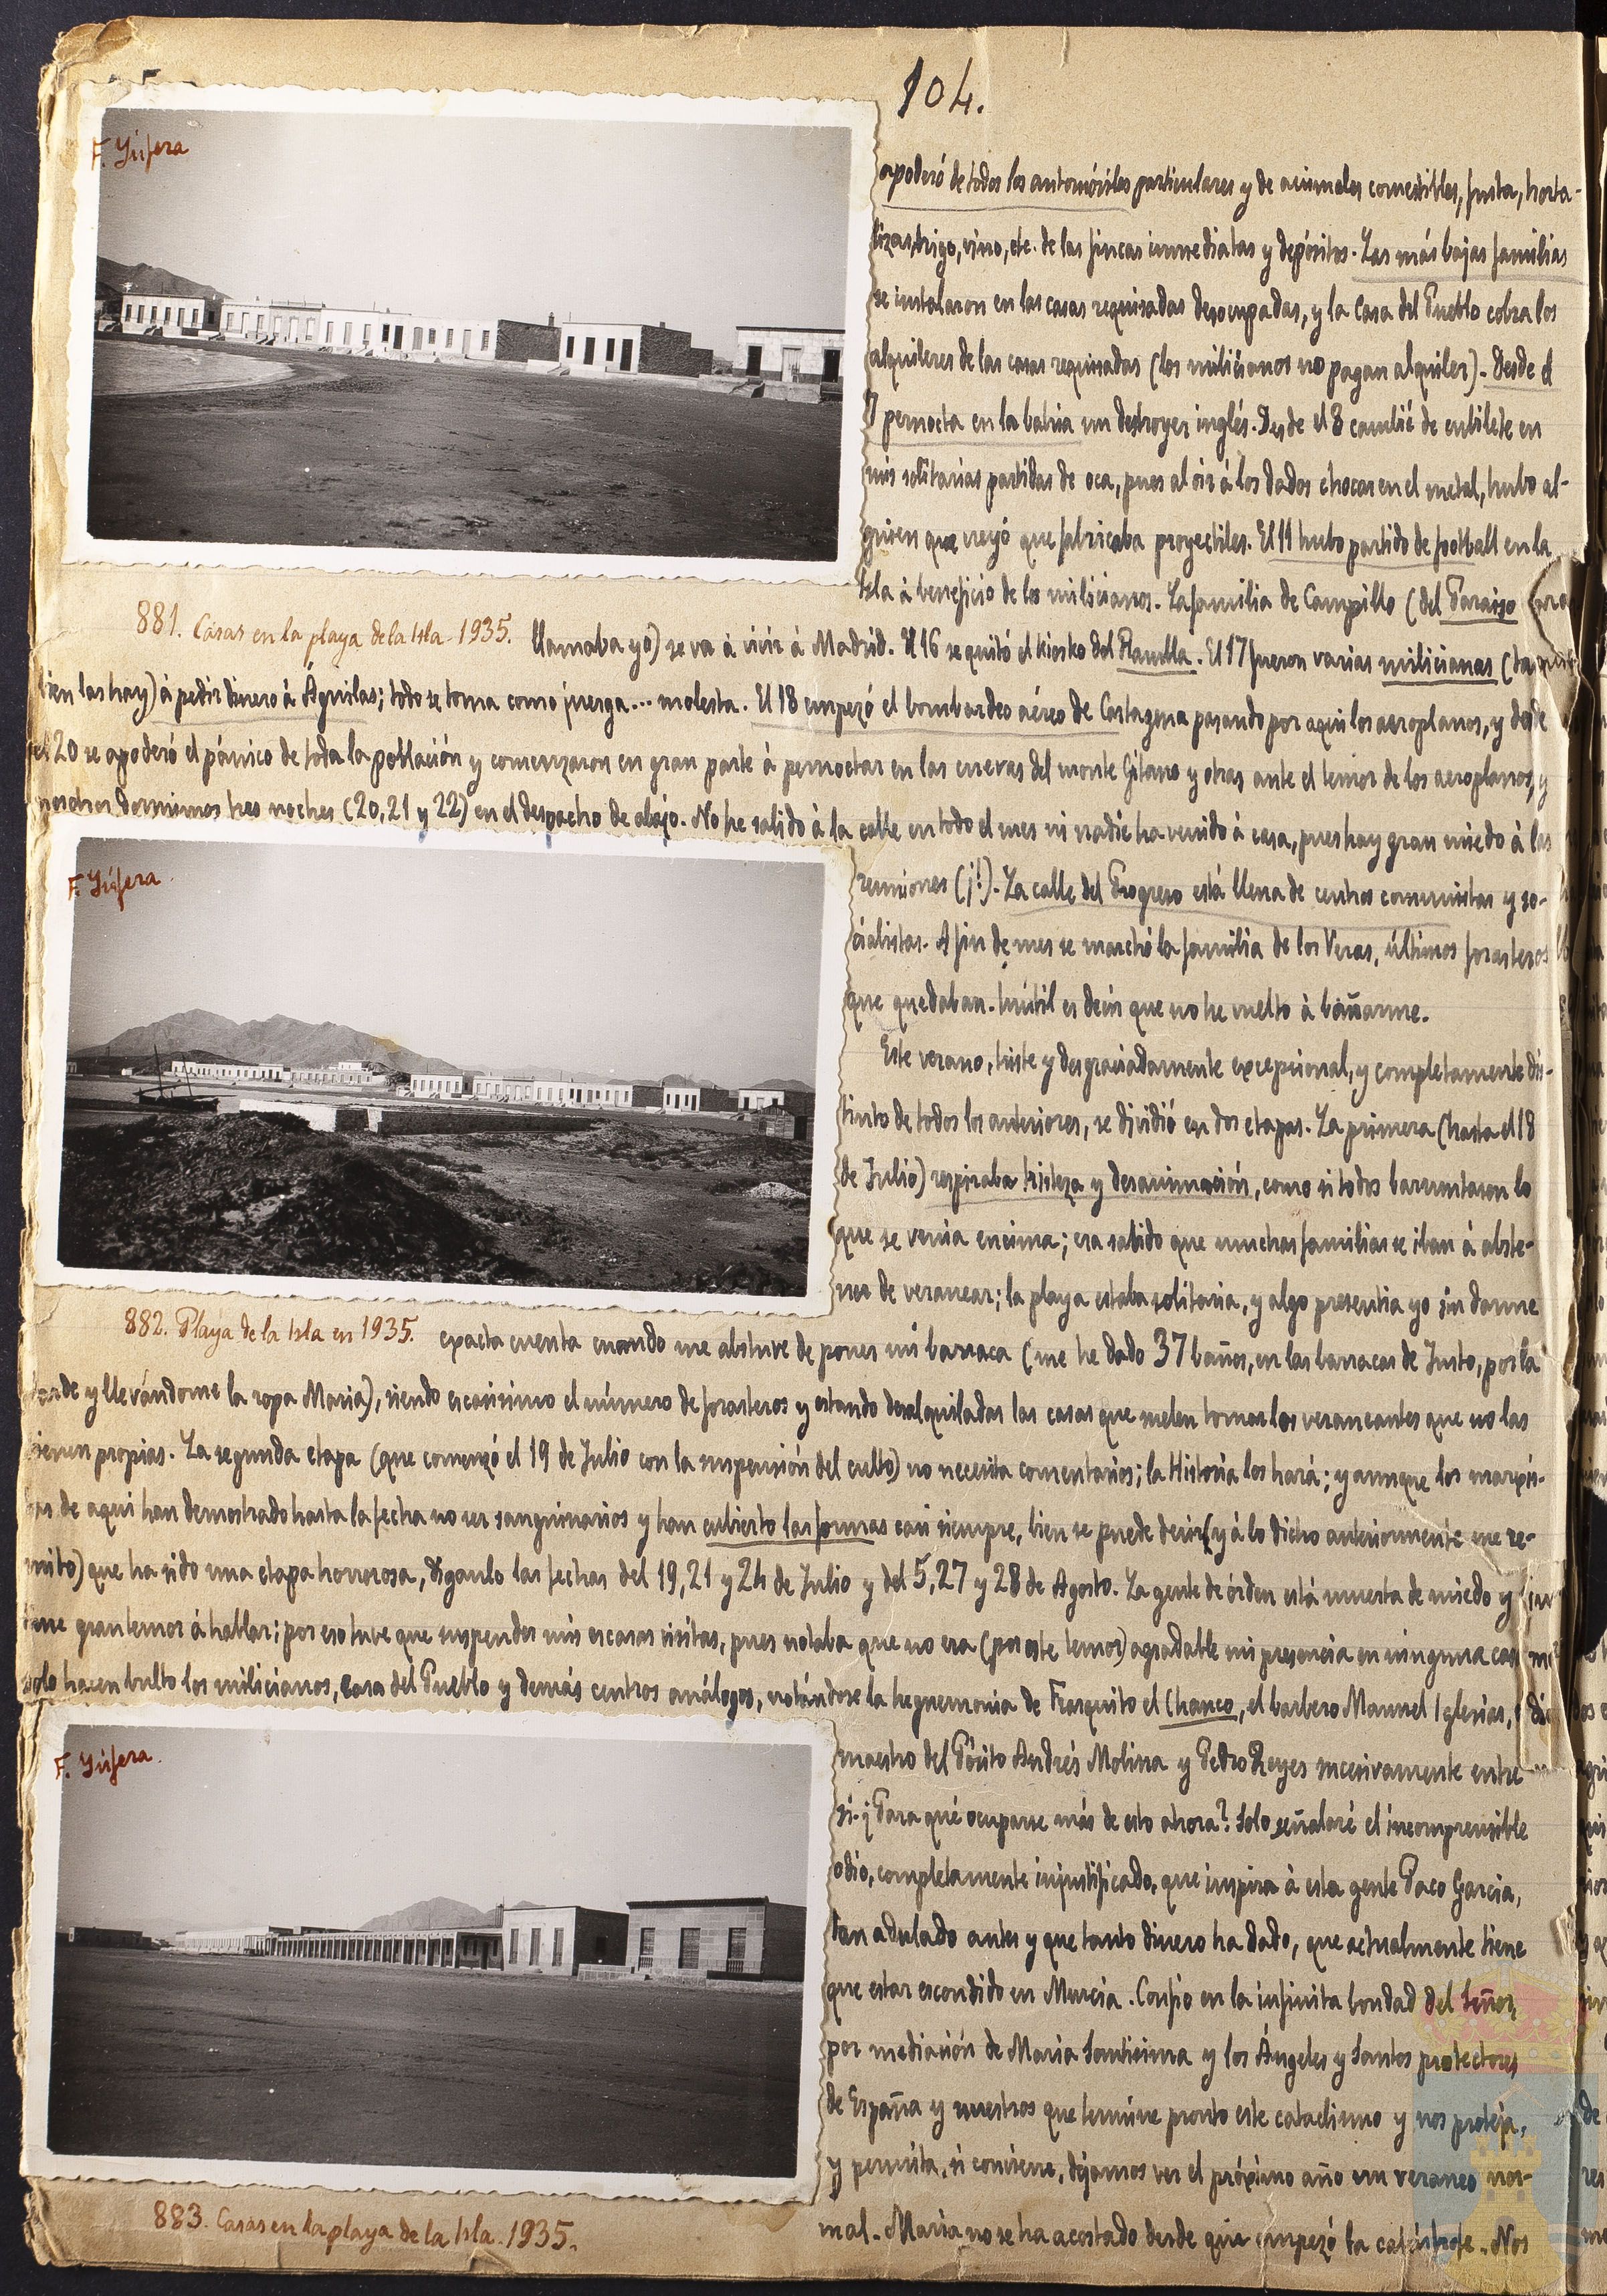 104.
F. Yúfera
apoderó de todos los automóviles particulares y de animales comestibles, fruta, horta-
lizas, trigo, vino, etc. de las fincas inmediatas y depósitos. Las más bajas familias
se instalaron en las casas requisadas desocupadas, y la Casa del Pueblo cobra los
alquileres de las casas requisadas (los milicianos no pagan alquiler). Desde el
7 pernocta en la bahia un destroyer inglés. Desde el 8 cambié de cubilete en
mis solitarias partidas de oca, pues al oir á los dados chocar en el metal, hubo al-
guien que creyó que fabricaba proyectiles. El 11 hubo partido de football en la
Isla á beneficio de los milicianos. La familia de Campillo (del Paraiso
881. Casas en la playa de la Isla - 1935.
llamaba yo) se va á vivir á Madrid. El 16 se quitó el kiosko del Planilla. El 17 fueron varias milicianas (tam
bien las hay) á pedir dinero á Águilas; todo se toma como juerga... molesta. El 18 empezó el bombardeo aéreo de Cartagena pasando por aqui los aeroplanos, y desde
el 20 se apoderó el pánico de toda la población y comenzaron en gran parte á pernoctar en las cuevas del monte Gitano y otras ante el temor de los aeroplanos, y
nosotros dormimos tres noches (20, 21 y 22) en el despacho de abajo. No he salido á la calle en todo el mes ni nadie ha venido á casa, pues hay gran miedo á las
F. Yúfera
reuniones (¡!). La calle del Progreso está llena de centros comunistas y so-
cialistas. A fin de mes se marchó la familia de los Veras, últimos forasteros
que quedaban. Inútil es decir que no he vuelto á bañarme.
Este verano, triste y desgraciadamente excepcional, y completamente dis-
tinto de todos los anteriores, se dividió en dos etapas. La primera (hasta el 18
de Julio) respiraba tristeza y desanimación, como si todos barruntaran lo
que se venia encima; era sabido que muchas familias se iban á abste-
ner de veranear; la playa estaba solitaria, y algo presentia yo sin darme
882. Playa de la Isla en 1935.
exacta cuenta cuando me abstuve de poner mi barraca (me he dado 37 baños, en las barracas de Justo, por la
tarde y llevándome la ropa Maria), siendo escasisimo el número de forasteros y estando desalquiladas las casas que suelen tomar los veraneantes que no las
tienen propias. La segunda etapa (que comenzó el 19 de Julio con la suspensión del culto) no necesita comentarios; la Historia los hará; y aunque los marxis-
tas de aqui han demostrado hasta la fecha no ser sanguinarios y han cubierto las formas casi siempre, bien se puede decir (y á lo dicho anteriormente me re-
mito) que ha sido una etapa horrorosa, diganlo las fechas del 19, 21 y 24 de Julio y del 5, 27 y 28 de Agosto. La gente de órden está muerta de miedo y
tiene gran temor á hablar; por eso tuve que suspender mis escasas visitas, pues notaba que no era (por este temor) agradable mi presencia en ninguna casa
solo hacen bulto los milicianos, Casa del Pueblo y demás centros análogos, notándose la heguemonia de Frasquito el Chanco, el barbero Manuel Iglesias,
F. Yúfera.
maestro del Pósito Andrés Molina y Pedro Reyes sucesivamente entre
si. ¿Para qué ocuparse más de esto ahora? Solo señalaré el incomprensible
odio, completamente injustificado, que inspira á esta gente Paco Garcia,
tan adulado antes y que tanto dinero ha dado, que actualmente tiene
que estar escondido en Murcia. Confio en la infinita bondad del Señor,
por mediación de Maria Santisima y los Ángeles y Santos protectores
de España y nuestros que termine pronto este cataclismo y nos proteja,
y permita, si conviene, dejarnos ver el próximo año un veraneo nor-
mal. Maria no se ha acostado desde que empezó la catástrofe. Nos
883. Casas en la playa de la Isla. 1935.